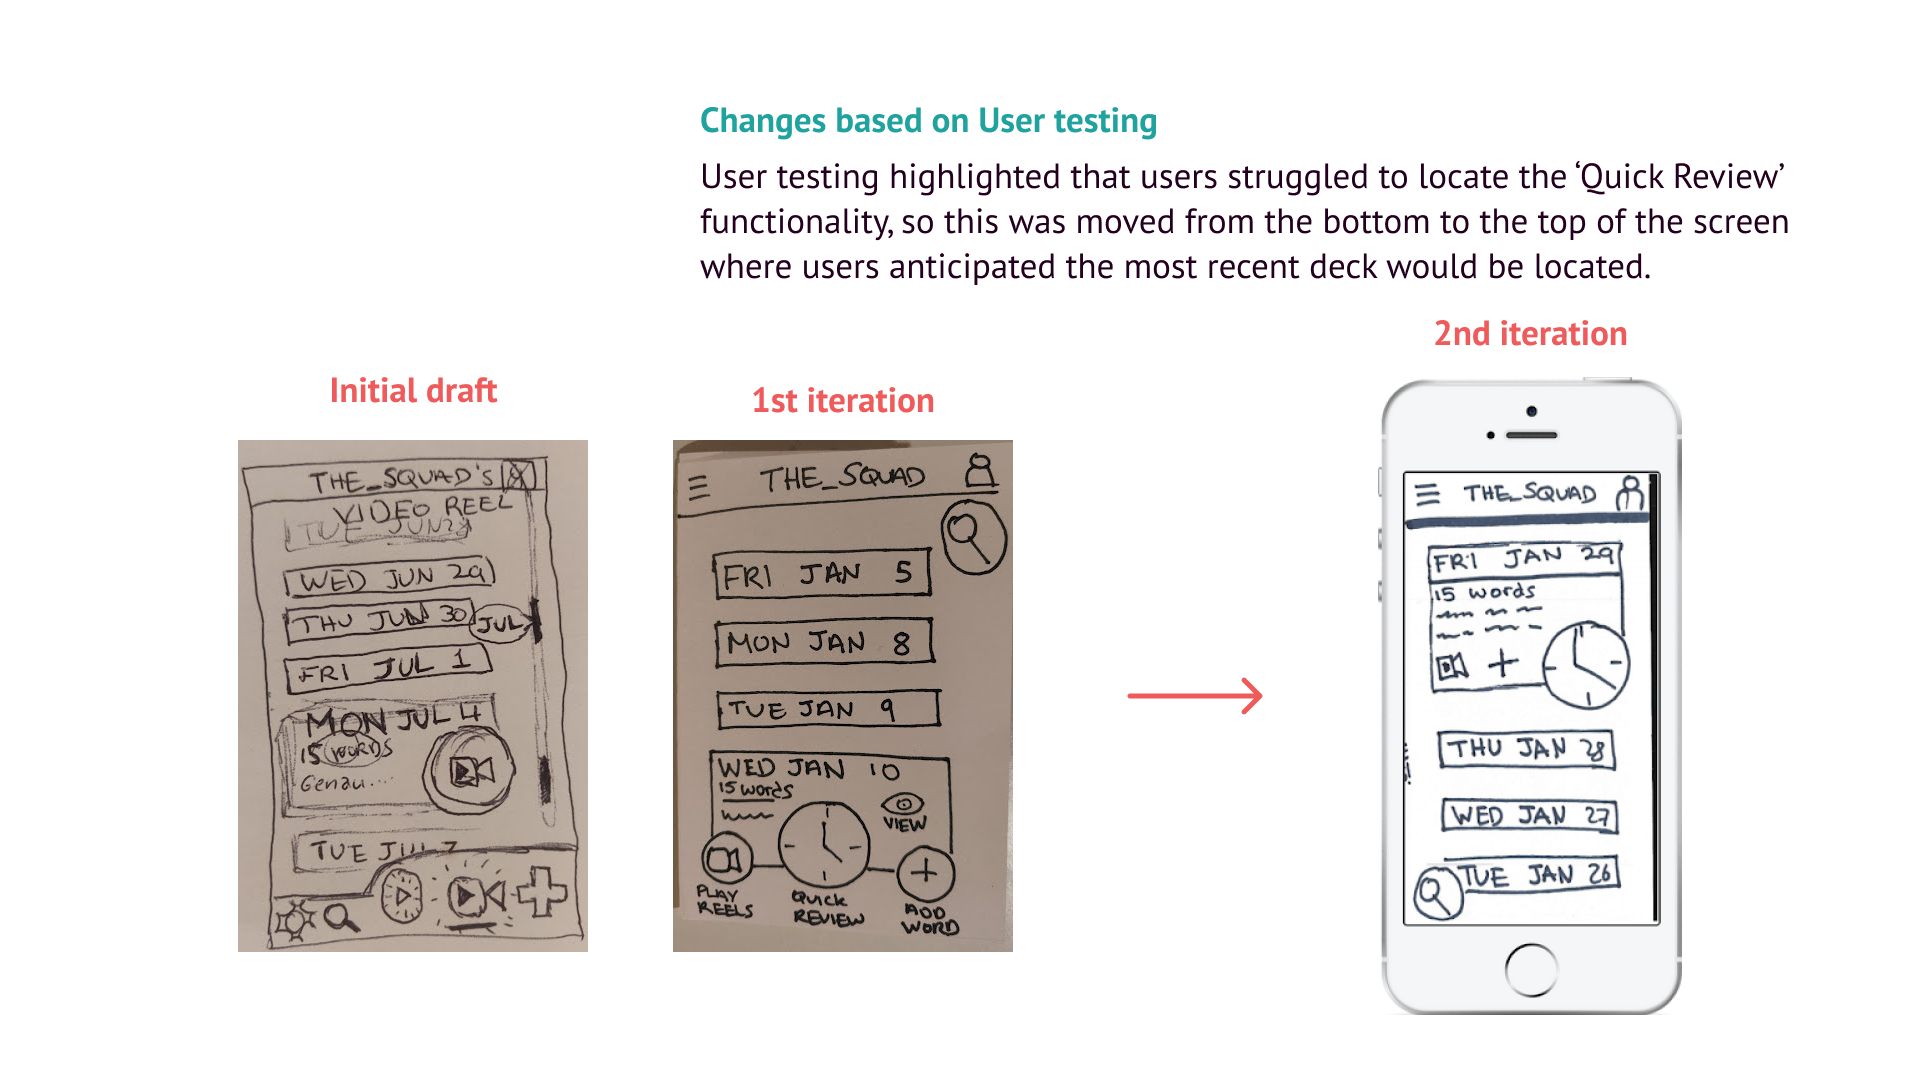 Changes based on User testing
User testing highlighted that users struggled to locate the ‘Quick Review’
functionality, so this was moved from the bottom to the top of the screen
where users anticipated the most recent deck would be located.
Initial draft
THE_SQUAD'S
VIDEO REEL
TUE JUN 28
WED JUN 29
THU JUN 30
JUL
FRI JUL 1
MON JUL 4
15 WORDS
Genau...
TUE JUL
1st iteration
THE_SQUAD
FRI JAN 5
MON JAN 8
TUE JAN 9
WED JAN 10
15 words
VIEW
PLAY
REELS
QUICK
REVIEW
ADD
WORD
2nd iteration
THE_SQUAD
FRI JAN 29
15 words
THU JAN 28
WED JAN 27
TUE JAN 26